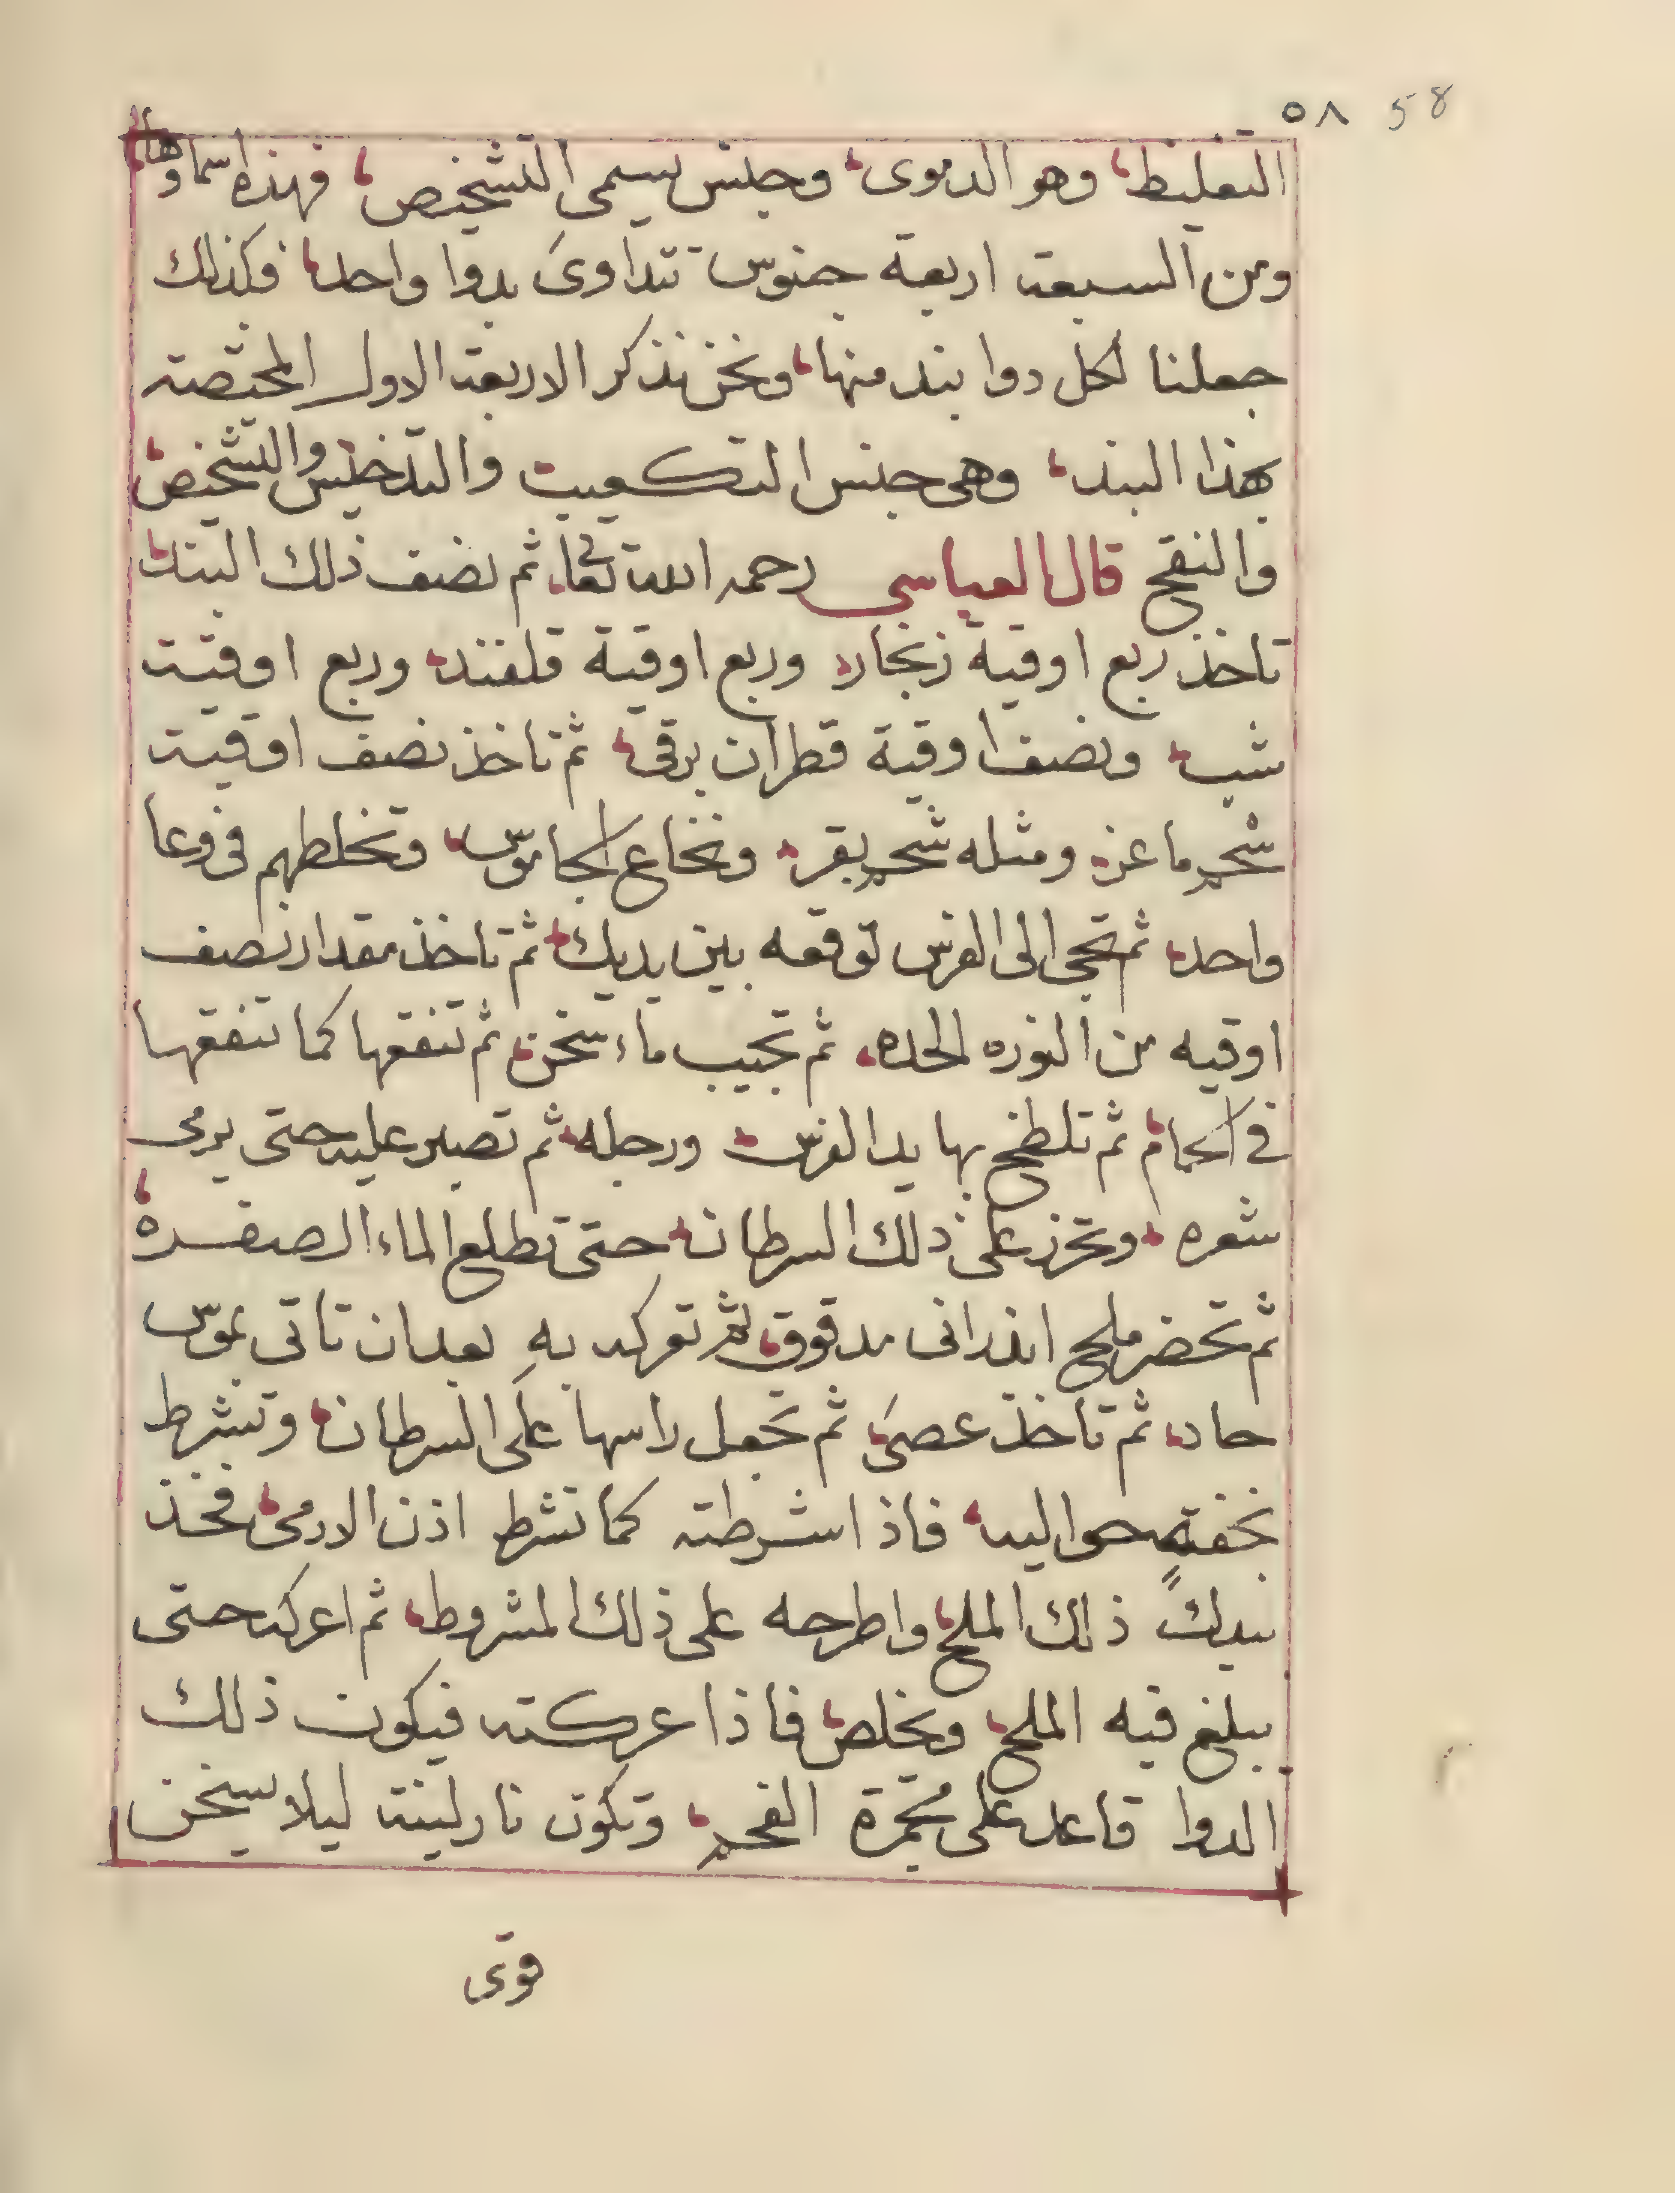 ٥٨ 58
التغليظ، وهو الدموى، وجنس يسمى التشخيص، فهذه اسماوها
ومن السبعة اربعة جنوس تتداوى بدوا واحد، فكذلك
جعلنا لكل دوا بند منها، ونحن نذكر الاربعة الاول المختصة
بهذا البند، وهى جنس التكعيب والتدخيس والتشخيص،
والنفخ قال العباسى رحمه الله تعا، ثم نصف ذلك البند،
تاخذ ربع اوقية زنجار، وربع اوقية قلفند، وربع اوقية
شب، ونصف اوقية قطران برقى، ثم تاخذ نصف اوقية
شحم ماعز، ومثله شحم بقر، ونخاع الجاموس، وتخلطهم فى وعا
واحد، ثم تجى الى الفرس توقفه بين يديك، ثم تاخذ مقدار نصف
اوقيه من النوره الحاده، ثم تجيب ماء سخن، ثم تنقعها كما تنقعها
فى الحمام، ثم تلطخ بها يد الفرس، ورجله، ثم تصبر عليه حتى يرمى
شعره، وتحزز على ذلك السرطان، حتى تطلع الماء الصفره،
ثم تحضر ملح اندرانى مدقوق، ثم تعركه به بعد ان تاتى بموس
حاد، ثم تاخذ عصى، ثم تجعل راسها على السرطان، وتشرط
بخفة حواليه، فاذ اشرطته كما تشرط اذن الادمى، فخذ
بيدك ذلك الملح، واطرحه على ذلك المشروط، ثم اعركه حتى
يبلغ فيه الملح، ويخلص، فاذا عركته فيكون ذلك
الدوا قاعد على مجمرة الفحم، وتكون نار لينة ليلا يسخن
قوى